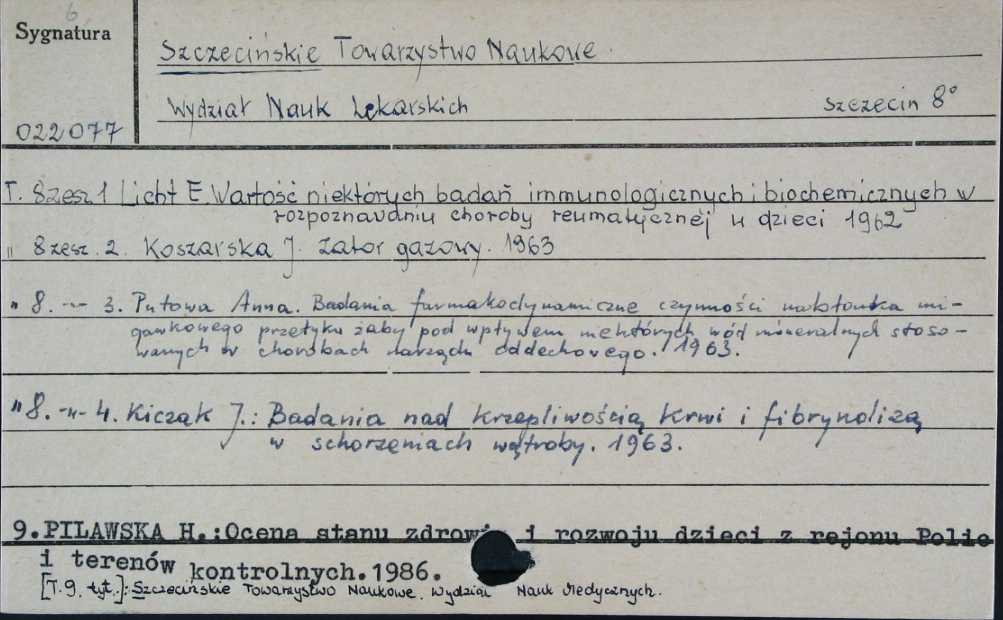 6
Sygnatura
Szczecińskie Towarzystwo Naukowe.
Wydział Nauk Lekarskich Szczecin 8°
022077
T. 8 zesz 1 Licht E. Wartość niektórych badań immunologicznych i biochemicznych w
rozpoznawaniu choroby reumatycznej u dzieci 1962
" 8 zesz. 2. Koszarska J. Zator gazowy. 1963
" 8. -"- 3. Putowa Anna. Badania farmakodynamiczne czynności nabłonka mi-
gawkowego przełyku żaby pod wpływem niektórych wód mineralnych stoso-
wanych w chorobach narządu oddechowego. 1963.
" 8. -"- 4. Kiczak J.: Badania nad krzepliwością krwi i fibrynolizą
w schorzeniach wątroby. 1963.
9. PILAWSKA H.: Ocena stanu i rozwoju dzieci z rejonu Polic
i terenów kontrolnych. 1986.
[T. 9. tyt.]: Szczecińskie Towarzystwo Naukowe. Wydział Nauk Medycznych.